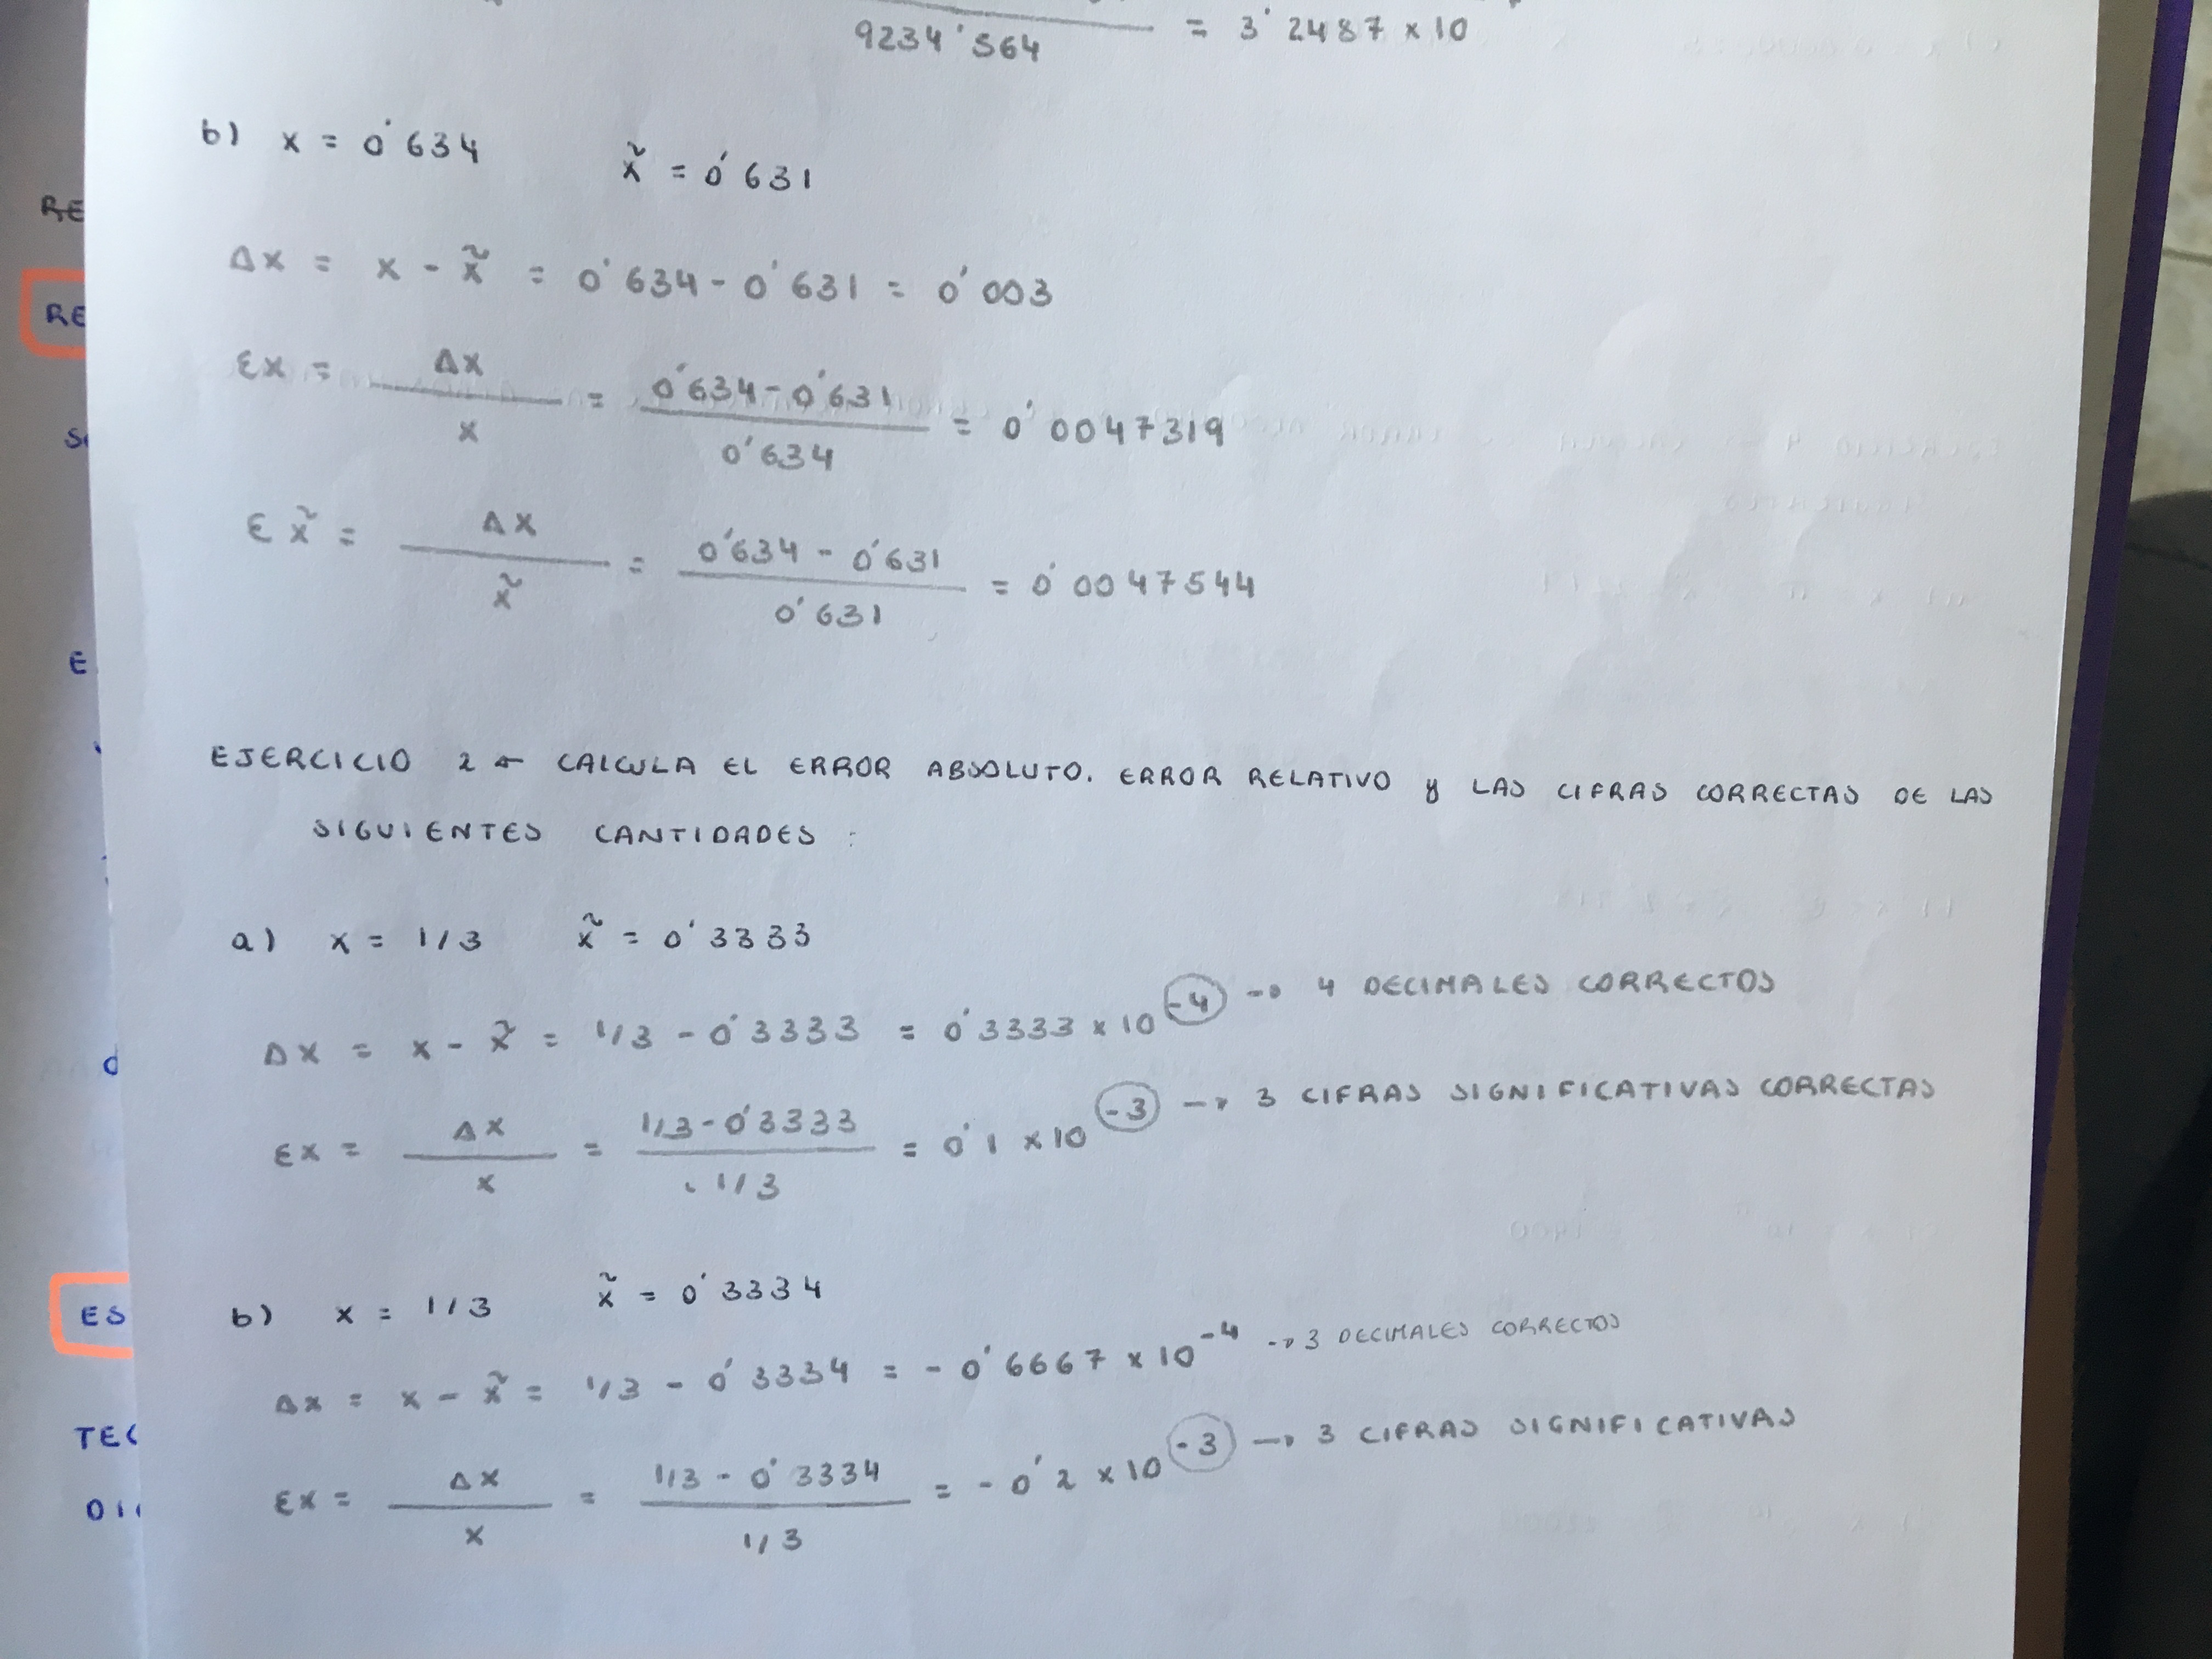 9234'564 = 3'2487 x 10
b) x = 0'634 x̃ = 0'631
Δx = x - x̃ = 0'634 - 0'631 = 0'003
εx = Δx / x = 0'634 - 0'631 / 0'634 = 0'0047319
εx̃ = Δx / x̃ = 0'634 - 0'631 / 0'631 = 0'0047544
EJERCICIO 2 ← CALCULA EL ERROR ABSOLUTO. ERROR RELATIVO y LAS CIFRAS CORRECTAS DE LAS
SIGUIENTES CANTIDADES :
a) x = 1/3 x̃ = 0'3333
Δx = x - x̃ = 1/3 - 0'3333 = 0'3333 x 10^-4 → 4 DECIMALES CORRECTOS
εx = Δx / x = 1/3 - 0'3333 / 1/3 = 0'1 x 10^-3 → 3 CIFRAS SIGNIFICATIVAS CORRECTAS
b) x = 1/3 x̃ = 0'3334
Δx = x - x̃ = 1/3 - 0'3334 = - 0'6667 x 10^-4 → 3 DECIMALES CORRECTOS
εx = Δx / x = 1/3 - 0'3334 / 1/3 = - 0'2 x 10^-3 → 3 CIFRAS SIGNIFICATIVAS
RE
RE
E
d
ES